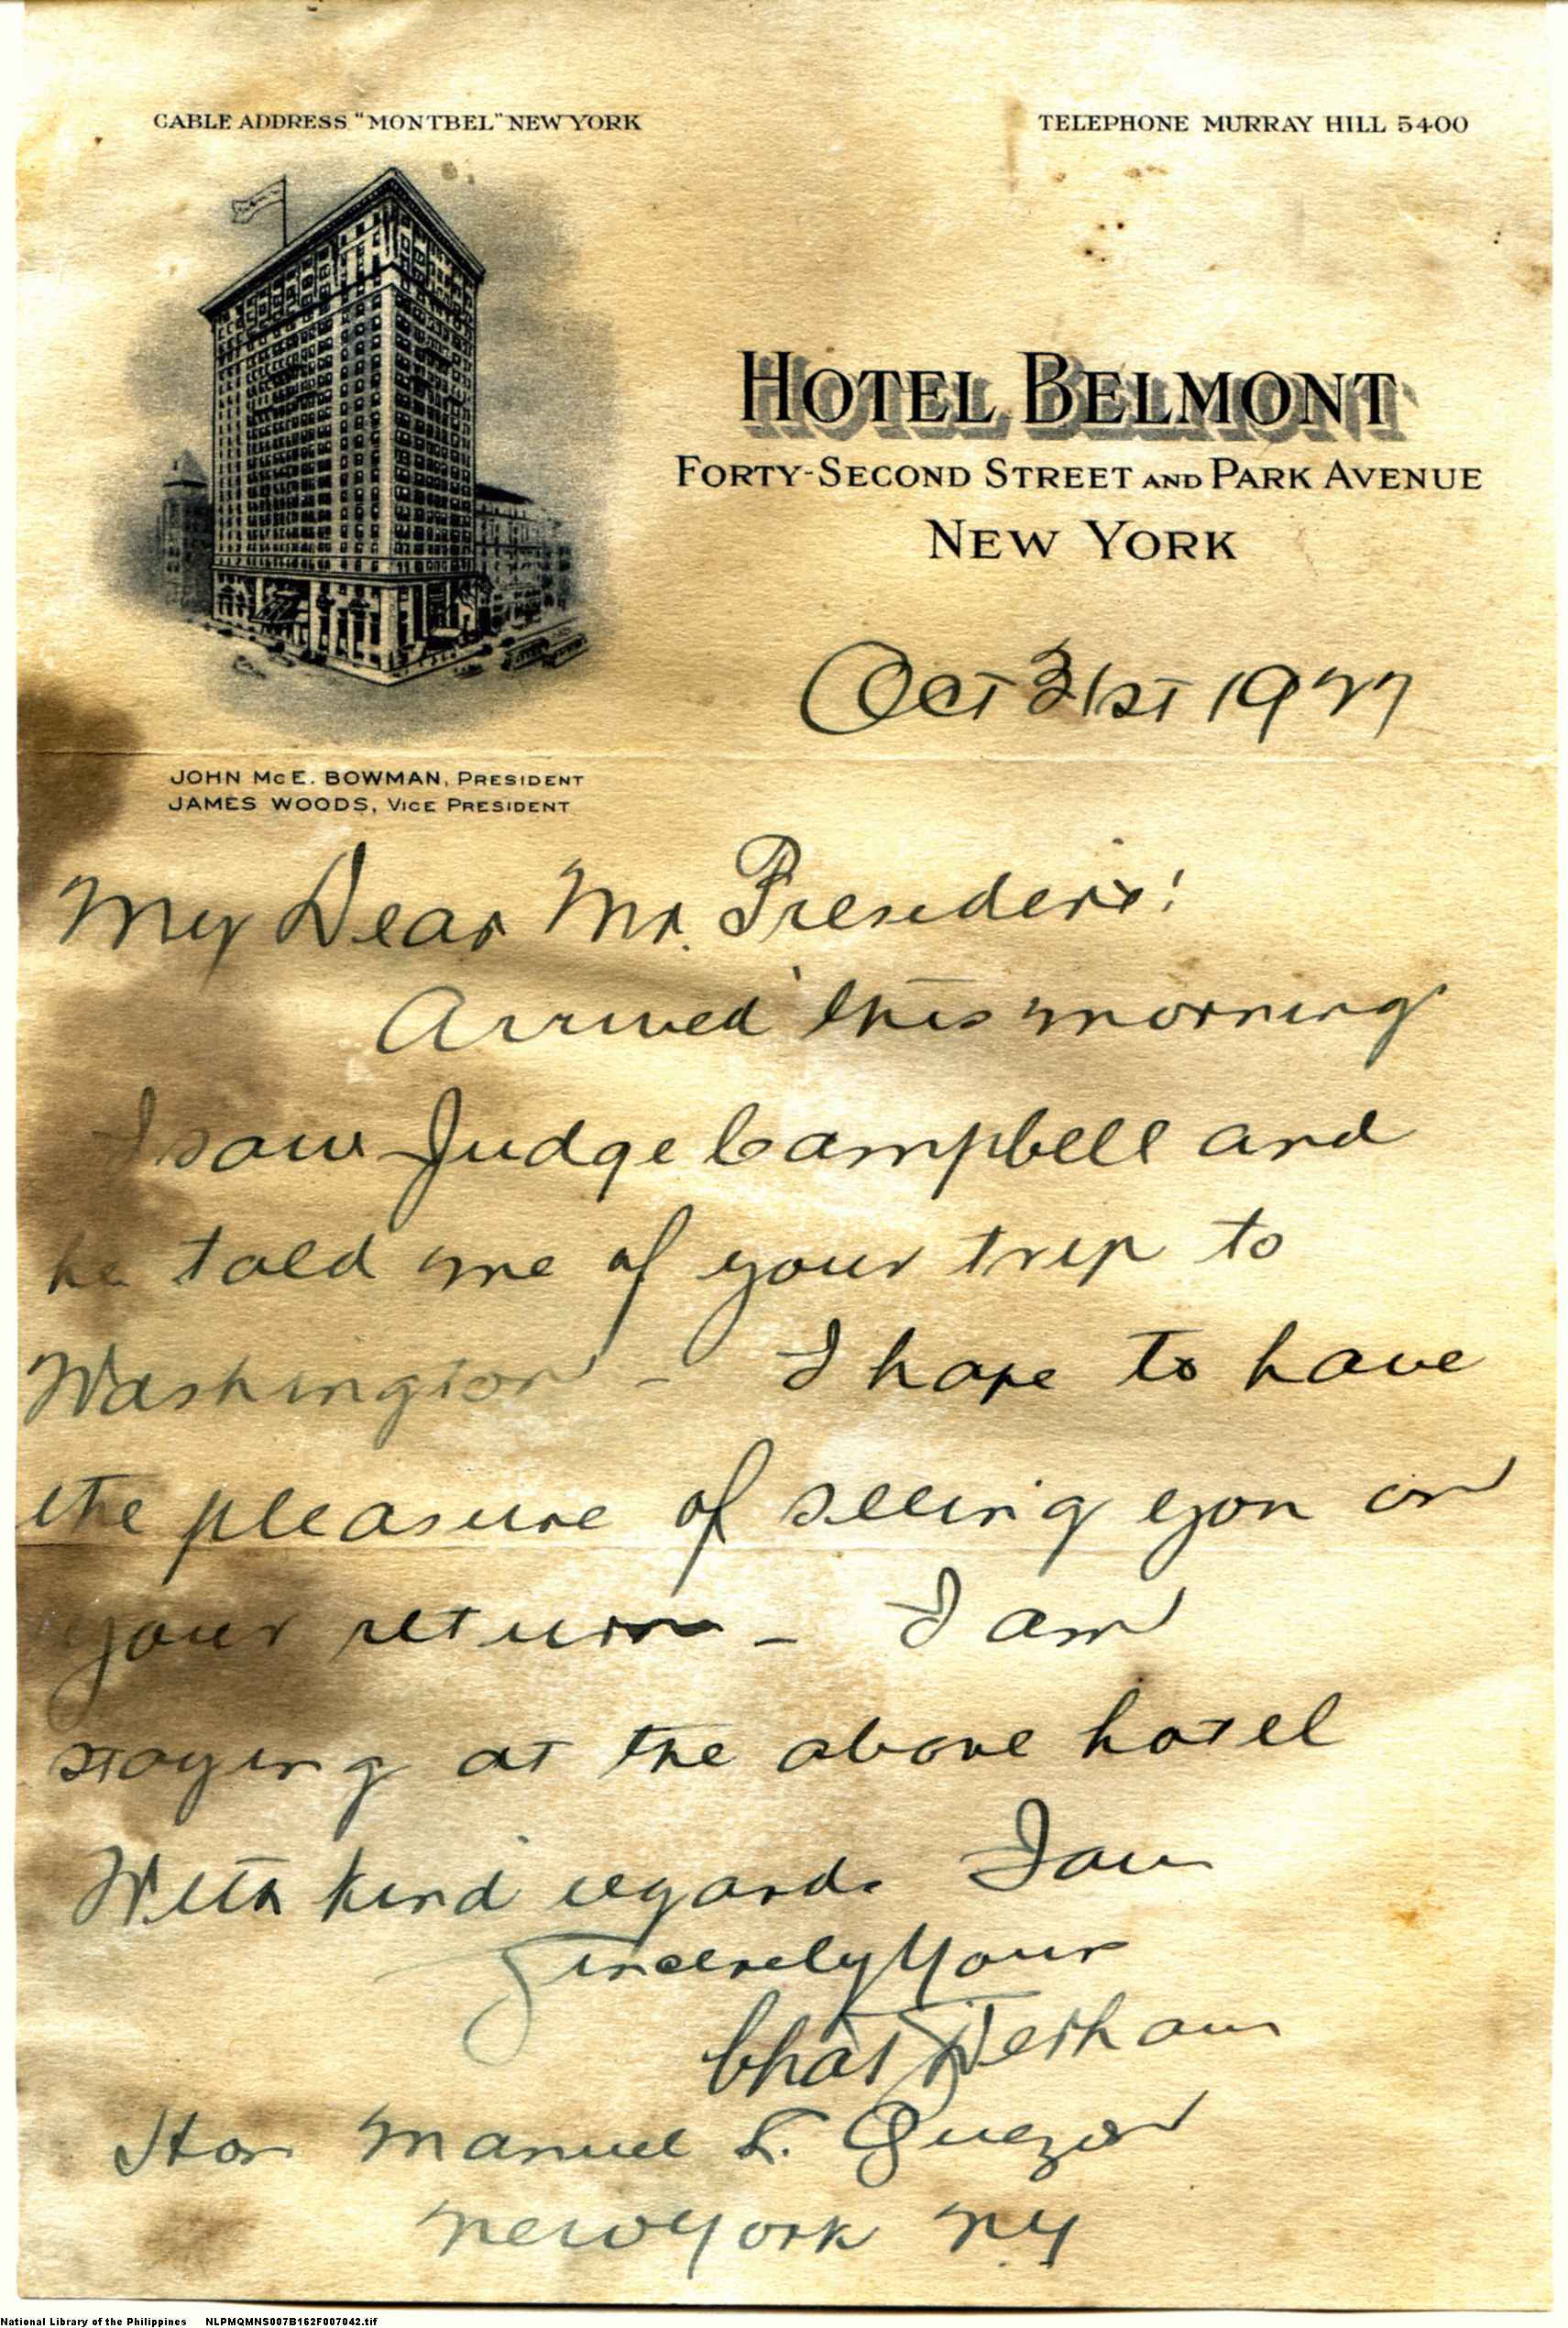 CABLE ADDRESS "MONTBEL" NEW YORK
TELEPHONE MURRAY HILL 5400
HOTEL BELMONT
FORTY-SECOND STREET AND PARK AVENUE
NEW YORK
Oct 31st 1927
JOHN McE. BOWMAN, PRESIDENT
JAMES WOODS, VICE PRESIDENT
My Dear Mr. President:
Arrived this morning
I saw Judge Campbell and
he told me of your trip to
Washington - I hope to have
the pleasure of seeing you on
your return - I am
staying at the above hotel
With kind regards I am
Sincerely Yours
Chas
Hon Manuel L. Quezon
New York NY
National Library of the Philippines NLPMQMNS007B162F007042.tif